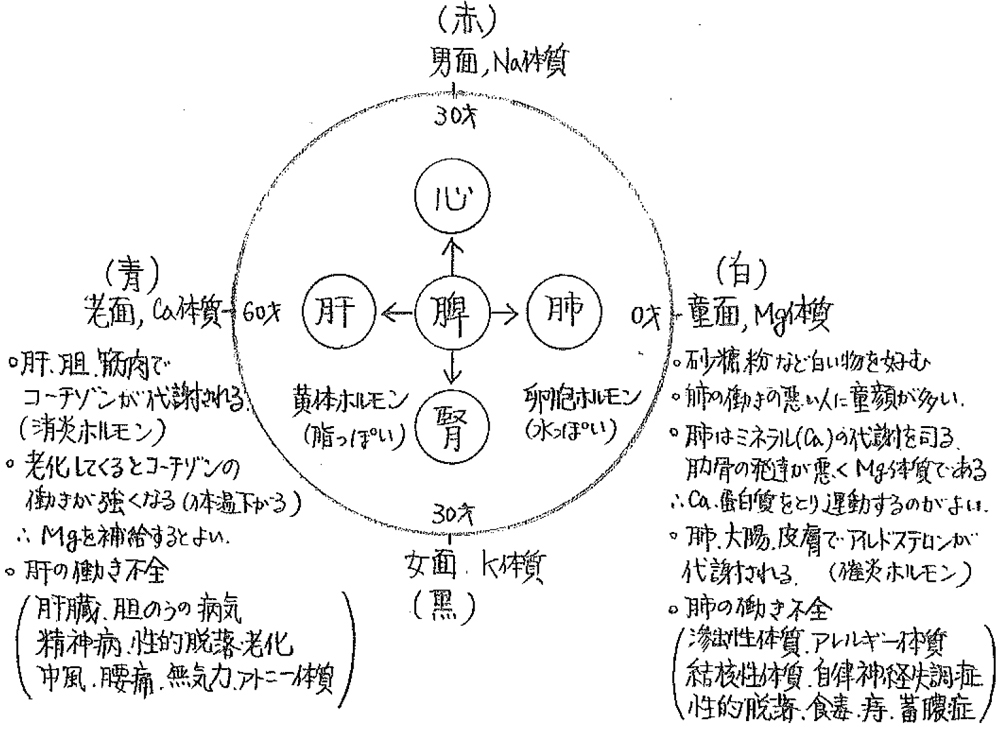 (赤)
男面,Na体質
30才
心
(青)
老面,Ca体質
60才
肝
脾
肺
0才
(白)
童面,Mg体質
黄体ホルモン
(脂っぽい)
腎
卵胞ホルモン
(水っぽい)
30才
女面.K体質
(黒)
○肝.胆.筋肉で
コーチゾンが代謝される.
(消炎ホルモン)
○老化してくるとコーチゾンの
働きが強くなる(体温下がる)
∴Mgを補給するとよい.
○肝の働き不全
肝臓.胆のうの病気
精神病.性的脱落.老化
中風.腰痛.無気力.アトニー体質
○砂糖.粉など白い物を好む
○肺の働きの悪い人に童顔が多い.
○肺はミネラル(Ca)の代謝を司る.
肋骨の発達が悪くMg体質である
∴Ca.蛋白質をとり運動するのがよい.
○肺.大腸.皮膚でアルドステロンが
代謝される. (催炎ホルモン)
○肺の働き不全
滲出性体質.アレルギー体質
結核性体質.自律神経失調症
性的脱落.食毒.痔.蓄膿症